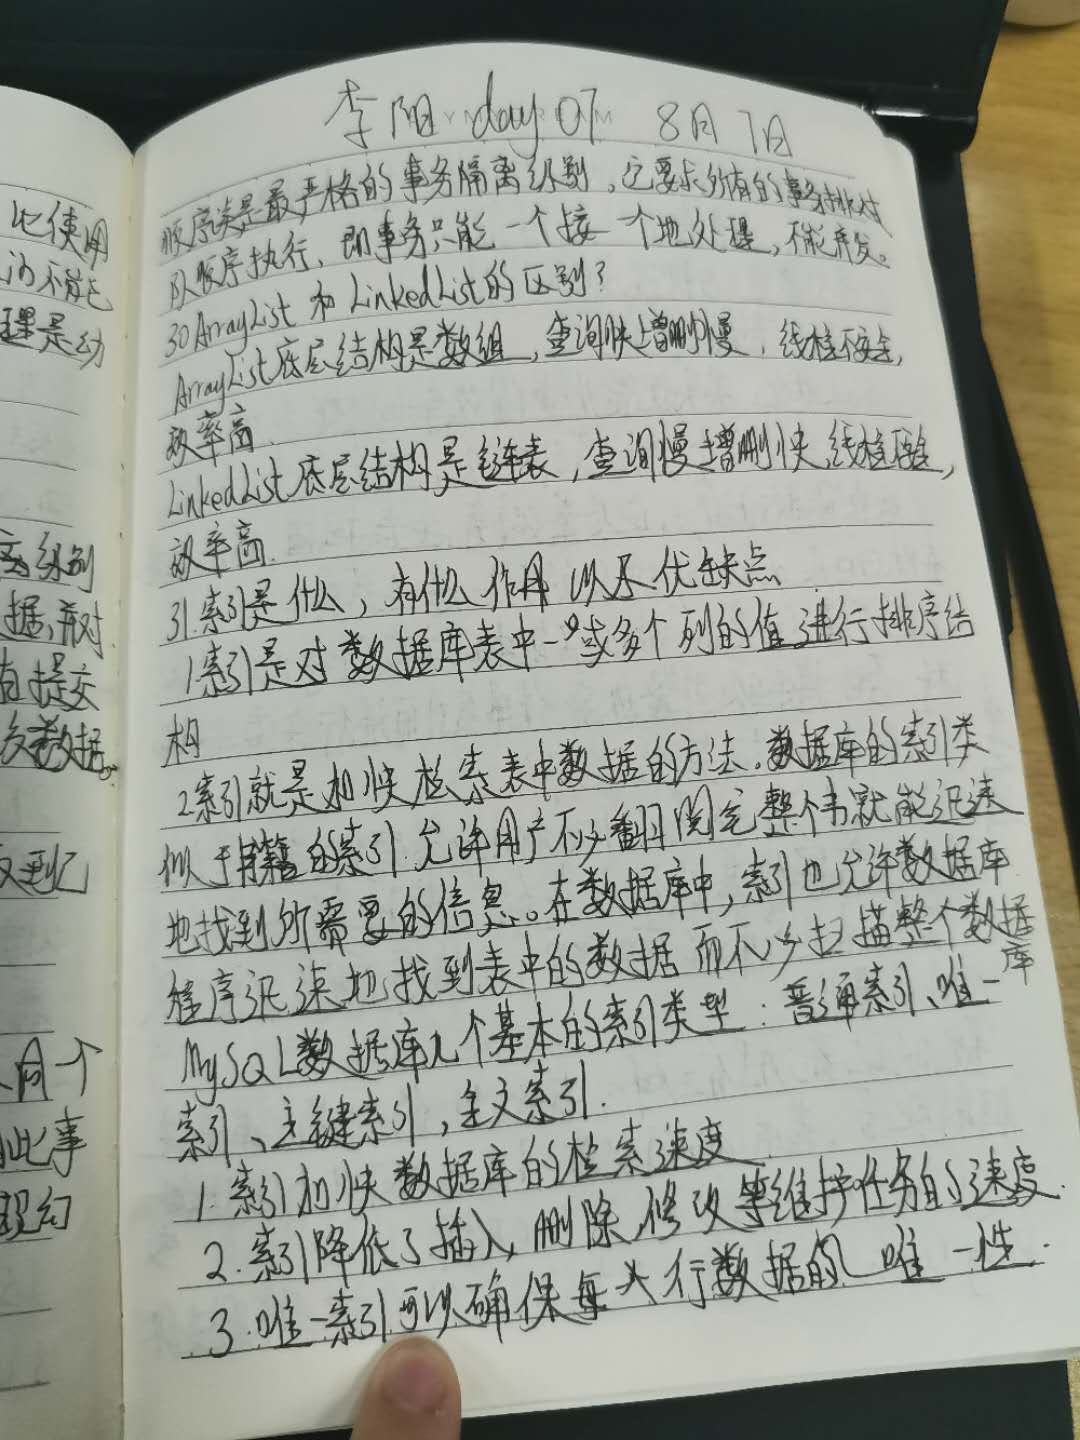 李阳 day 07 8月7日
顺序读是最严格的事务隔离级别，它要求所有的事务排对
队顺序执行，即事务只能一个接一个地处理，不能并发。
30 ArrayList 和 LinkedList的区别？
ArrayList底层结构是数组，查询快增删慢，线程不安全，
效率高
LinkedList底层结构是链表，查询慢增删快 线程不安全，
效率高.
31.索引是什么，有什么作用 以及优缺点
1.索引是对数据库表中一或多个列的值进行排序结
构
2索引就是加快检索表中数据的方法。数据库的索引类
似于书籍的索引.允许用户不必翻阅完整个书就能迅速
地找到所需要的信息。在数据库中，索引也允许数据库
程序迅速地找到表中的数据而不必扫描整个数据
库
MySQL数据库几个基本的索引类型：普通索引、唯一
索引、主键索引，全文索引.
1.索引加快数据库的检索速度
2.索引降低了插入，删除,修改等维护任务的速度.
3.唯一索引可以确保每行数据的唯一性.
此使用
不能
理是动
离级别
据,并对
有提交
次数据。
同个
此事
现幻